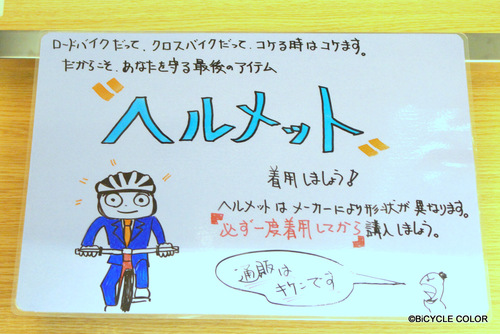 ロードバイクだって、クロスバイクだって、コケる時はコケます。
だからこそ、あなたを守る最後のアイテム
"ヘルメット"
着用しましょう!
ヘルメットはメーカーにより形状が異なります。
"必ず一度着用してから"購入しましょう。
通販は
キケンです
©BiCYCLE COLOR